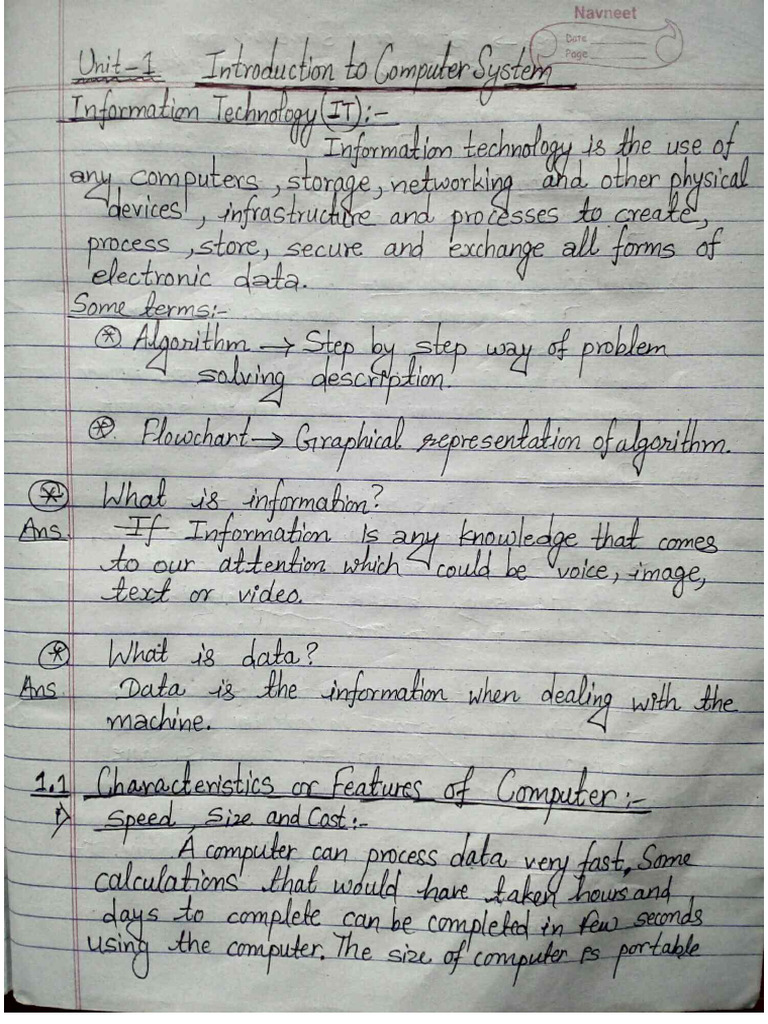 Navneet
Date
Page
Unit-1 Introduction to Computer System
Information Technology (IT):-
Information technology is the use of
any computers, storage, networking and other physical
devices, infrastructure and processes to create,
process, store, secure and exchange all forms of
electronic data.
Some terms:-
* Algorithm → Step by step way of problem
solving description.
* Flowchart → Graphical representation of algorithm.
* What is information?
Ans If Information is any knowledge that comes
to our attention which could be voice, image,
text or video.
* What is data?
Ans Data is the information when dealing with the
machine.
1.1 Characteristics or Features of Computer:-
Speed, Size and Cost:-
A computer can process data very fast. Some
calculations that would have taken hours and
days to complete can be completed in few seconds
using the computer. The size of computer is portable